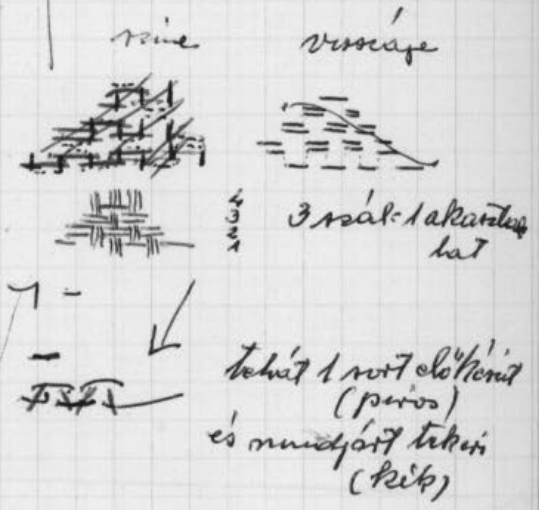 színe visszája
4
3
2
1
3 szál = 1 akaszta
hat
tehát 1 sort előkészít
(piros)
és mindjárt tekeri
(kék)